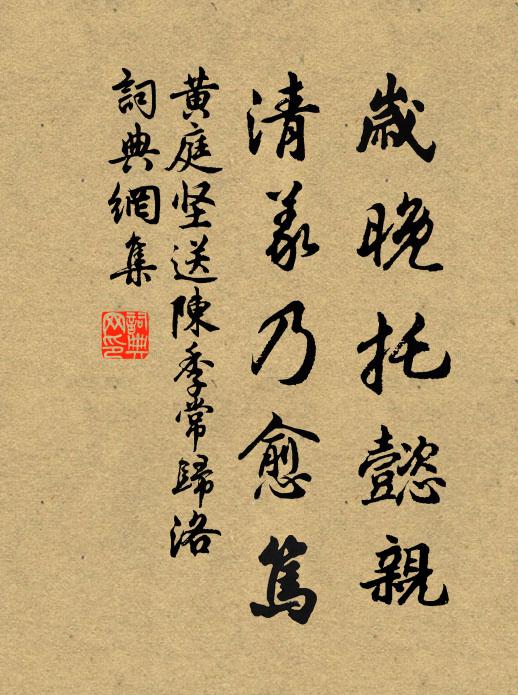 歲晚托懿親
清義乃愈篤
黃庭坚送陳季常歸洛
詞典網集
詞典網印